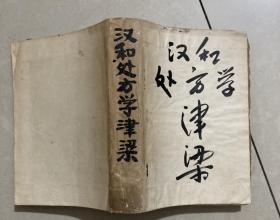 汉和处方学津梁
汉和
处方学
津梁